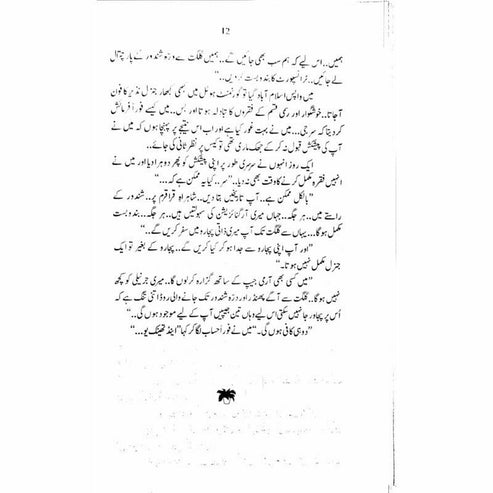 12
ہمیں.. اس لیے کہ ہم سب بھی جائیں گے.. ہمیں گلگت سے درّہ شندور کے پار چترال
لے جائیں.. ٹرانسپورٹ کا بندوبست کر دیں۔“
میں واپس اسلام آباد گیا تو گورنمنٹ ہوٹل میں بھی کبھار جنرل نذیر کا فون
آ جاتا.. خوشگوار اور رسمی قسم کے فقروں کا تبادلہ ہوتا اور بس.. میں کیسے فوراً فرمائش
کر دیتا کہ سر جی... میں نے بہت غور کیا ہے اور اب اس نتیجے پر پہنچا ہوں کہ میں نے
آپ کی پیشکش قبول نہ کر کے جھک ماری تھی تو کیس پر نظر ثانی کی جائے..
ایک روز انہوں نے سرسری طور پر اپنی پیشکش کو پھر دوہرا دیا اور میں نے
انہیں فقرہ مکمل کرنے کا وقت بھی نہ دیا.. ”سر.. کیا یہ ممکن ہے کہ...“
”بالکل ممکن ہے.. آپ تاریخیں بتا دیں.. شاہراہ قراقرم پر.. شندور کے
راستے میں.. ہر جگہ.. جہاں میری آرگنائزیشن کی سہولتیں ہیں.. ہر جگہ.. بندوبست
مکمل ہوگا... یہاں سے گلگت تک آپ میری ذاتی پجارو میں سفر کریں گے..“
”اور آپ اپنی پجارو سے جدا ہو کر کیا کریں گے.. پجارو کے بغیر تو ایک
جنرل مکمل نہیں ہوتا۔“
”میں کسی بھی آرمی جیپ کے ساتھ گزارہ کر لوں گا.. میری جرنیلی کو کچھ
نہیں ہوگا.. گلگت سے آگے پھنڈر اور درّہ شندور تک جانے والی روڈ اتنی تنگ ہے کہ
اُس پر پجارو جا نہیں سکتی اس لیے وہاں تین جیپیں آپ کے لیے موجود ہوں گی..“
”دو ہی کافی ہوں گی۔“ میں نے فوراً حساب لگا کر کہا ”اینڈ تھینک یو...“